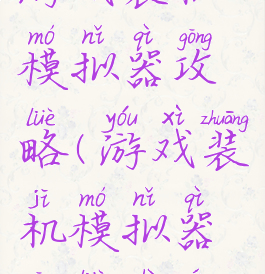 mó nǐ qì gōng
模拟器攻
lüè yóu xì zhuāng
略(游戏装
jī mó nǐ qì
机模拟器